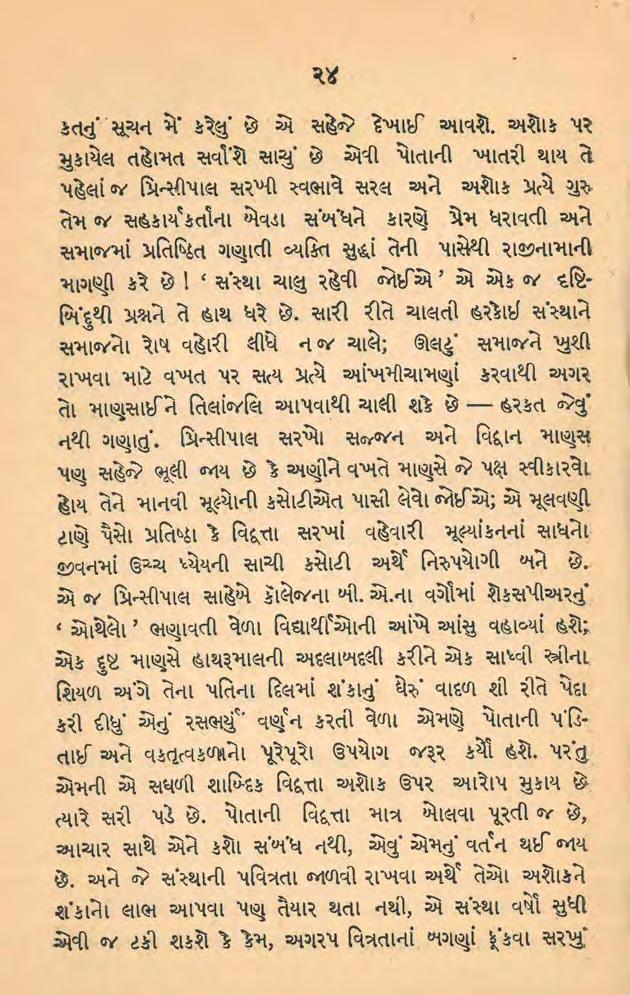 ૨૪
કતનું સૂચન મેં કરેલું છે એ સહેજે દેખાઈ આવશે. અશોક પર
મુકાયેલ તહોમત સર્વાંશે સાચું છે એવી પોતાની ખાતરી થાય તે
પહેલાં જ પ્રિન્સીપાલ સરખી સ્વભાવે સરલ અને અશોક પ્રત્યે ગુરુ
તેમ જ સહકાર્યકર્તાના બેવડા સંબંધને કારણે પ્રેમ ધરાવતી અને
સમાજમાં પ્રતિષ્ઠિત ગણાતી વ્યક્તિ સુદ્ધાં તેની પાસેથી રાજીનામાની
માગણી કરે છે ! ‘ સંસ્થા ચાલુ રહેવી જોઈએ ’ એ એક જ દૃષ્ટિ-
બિંદુથી પ્રશ્નને તે હાથ ધરે છે. સારી રીતે ચાલતી હરકોઇ સંસ્થાને
સમાજનો રોષ વહોરી લીધે ન જ ચાલે; ઊલટું સમાજને ખુશી
રાખવા માટે વખત પર સત્ય પ્રત્યે આંખમીચામણાં કરવાથી અગર
તો માણસાઈને તિલાંજલિ આપવાથી ચાલી શકે છે — હરકત જેવું
નથી ગણાતું. પ્રિન્સીપાલ સરખો સજ્જન અને વિદ્વાન માણસ
પણ સહેજે ભૂલી જાય છે કે અણીને વખતે માણસે જે પક્ષ સ્વીકારવો
હોય તેને માનવી મૂલ્યોની કસોટીએત પાસી લેવો જોઈએ; એ મૂલવણી
ટાણે પૈસો પ્રતિષ્ઠા કે વિદ્વત્તા સરખાં વહેવારી મૂલ્યાંકનનાં સાધનો
જીવનમાં ઉચ્ચ ધ્યેયની સાચી કસોટી અર્થે નિરુપયોગી બને છે.
એ જ પ્રિન્સીપાલ સાહેબે કૉલેજના બી. એ.ના વર્ગોમાં શેકસપીઅરનું
‘ ઓથેલો ’ ભણાવતી વેળા વિદ્યાર્થીઓની આંખે આંસુ વહાવ્યાં હશે;
એક દુષ્ટ માણસે હાથરૂમાલની અદલાબદલી કરીને એક સાધ્વી સ્ત્રીના
શિયળ અંગે તેના પતિના દિલમાં શંકાનું ઘેરું વાદળ શી રીતે પેદા
કરી દીધું એનું રસભર્યું વર્ણન કરતી વેળા એમણે પોતાની પંડિ-
તાઈ અને વકતૃત્વકળાનો પૂરેપૂરો ઉપયોગ જરૂર કર્યો હશે. પરંતુ
એમની એ સઘળી શાબ્દિક વિદ્વત્તા અશોક ઉપર આરોપ મુકાય છે
ત્યારે સરી પડે છે. પોતાની વિદ્વત્તા માત્ર બોલવા પૂરતી જ છે,
આચાર સાથે એને કશો સંબંધ નથી, એવું એમનું વર્તન થઈ જાય
છે. અને જે સંસ્થાની પવિત્રતા જાળવી રાખવા અર્થે તેઓ અશોકને
શંકાનો લાભ આપવા પણ તૈયાર થતા નથી, એ સંસ્થા વર્ષો સુધી
એવી જ ટકી શકશે કે કેમ, અગરપ વિત્રતાનાં બગણાં ફૂંકવા સરખું